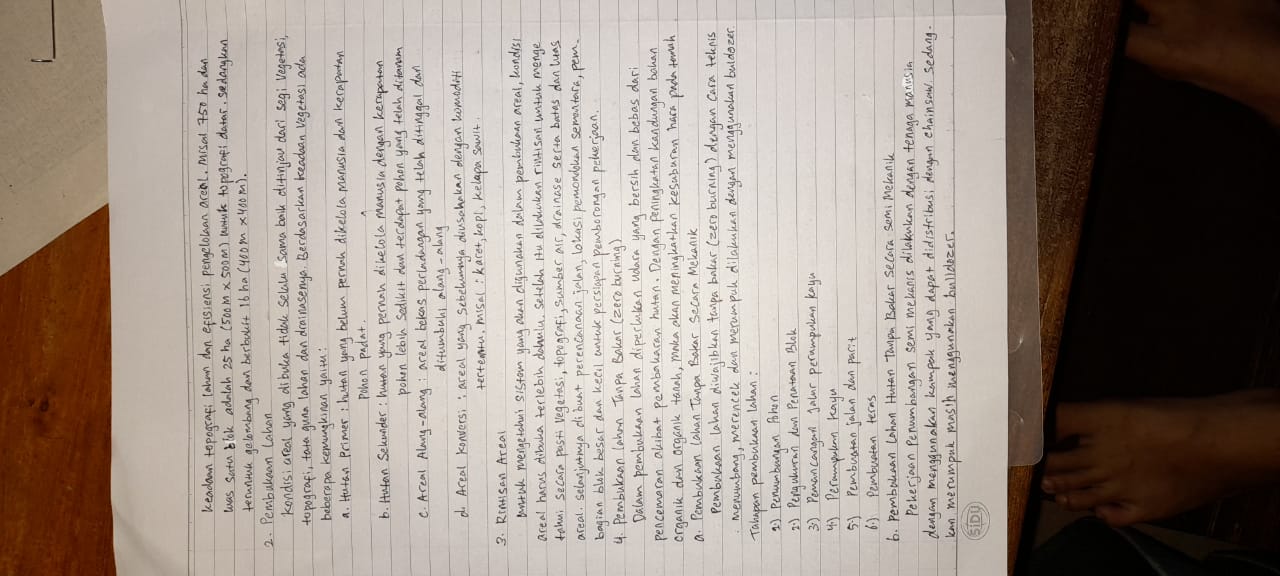 keadaan topografi lahan dan efisiensi pengelolaan areal. Misal 750 ha dan
luas satu blok adalah 25 ha (500 m x 500 m) untuk topografi datar. sedangkan
teruntuk gelombang dan berbukit 16 ha (400 m x 400 m).
2. Pembukaan Lahan
Kondisi areal yang dibuka tidak selalu sama baik ditinjau dari segi Vegetasi,
topografi, tata guna lahan dan drainasenya. Berdasarkan keadaan vegetasi ada
beberapa kemungkinan yaitu:
a. Hutan Primer : hutan yang belum pernah dikelola manusia dan kerapatan
pohon padat.
b. Hutan Sekunder : hutan yang pernah dikelola manusia dengan kerapatan
pohon lebih sedikit dan terdapat pohon yang telah ditanam
c. Areal Alang-alang : areal bekas perladangan yang telah ditinggal dan
ditumbuhi alang-alang
d. Areal konversi : areal yang sebelumnya diusahakan dengan komoditi
tertentu. misal : karet, kopi, kelapa sawit.
3. Rintisan Areal
untuk mengetahui sistem yang akan digunakan dalam pembukaan areal, kondisi
areal harus dibuka terlebih dahulu. setelah itu dilakukan rintisan untuk menge
tahui secara pasti vegetasi, topografi, sumber air, drainase serta batas dan luas
areal. selanjutnya dibuat perencanaan jalan, lokasi pemondokan sementara, pem-
bagian blok besar dan kecil untuk persiapan pemborongan pekerjaan.
4. Pembukaan lahan Tanpa Bakar (zero burning)
Dalam pembukaan lahan diperlukan udara yang bersih dan bebas dari
pencemaran akibat pembakaran hutan. Dengan peningkatan kandungan bahan
organik dan organik tanah, maka akan meningkatkan kesuburan hara pada tanah
a. Pembukaan Lahan Tanpa Bakar Secara Mekanik
Pembukaan lahan diwajibkan tanpa bakar (zero burning) dengan cara teknis
menumbang, merencek dan merumpuk dilakukan dengan menggunakan buldozer
Tahapan pembukaan lahan :
1) Penumbangan Pohon
2) Pengukuran dan Penataan Blok
3) Pemancangan jalur perumpukan kayu
4) Perumpukan kayu
5) Pembuatan jalan dan parit
6) Pembuatan teras
b. Pembukaan Lahan Hutan Tanpa Bakar Secara Semi Mekanik
Pekerjaan Penumbangan semi mekanis dilakukan dengan tenaga manusia
dengan menggunakan kampak yang dapat didistribusi dengan chainsaw. sedang-
kan merumpuk masih menggunakan bulldozer.
SIDU